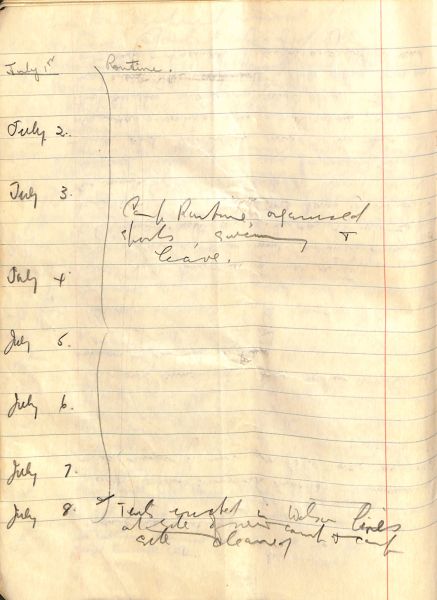 July 1st Routine.
July 2.
July 3
Camp Routine, organised
sports, swimming &
leave.
July 4
July 5.
July 6.
July 7.
July 8. Tents erected in Wilson lines
at site of new camp & camp
site cleaned